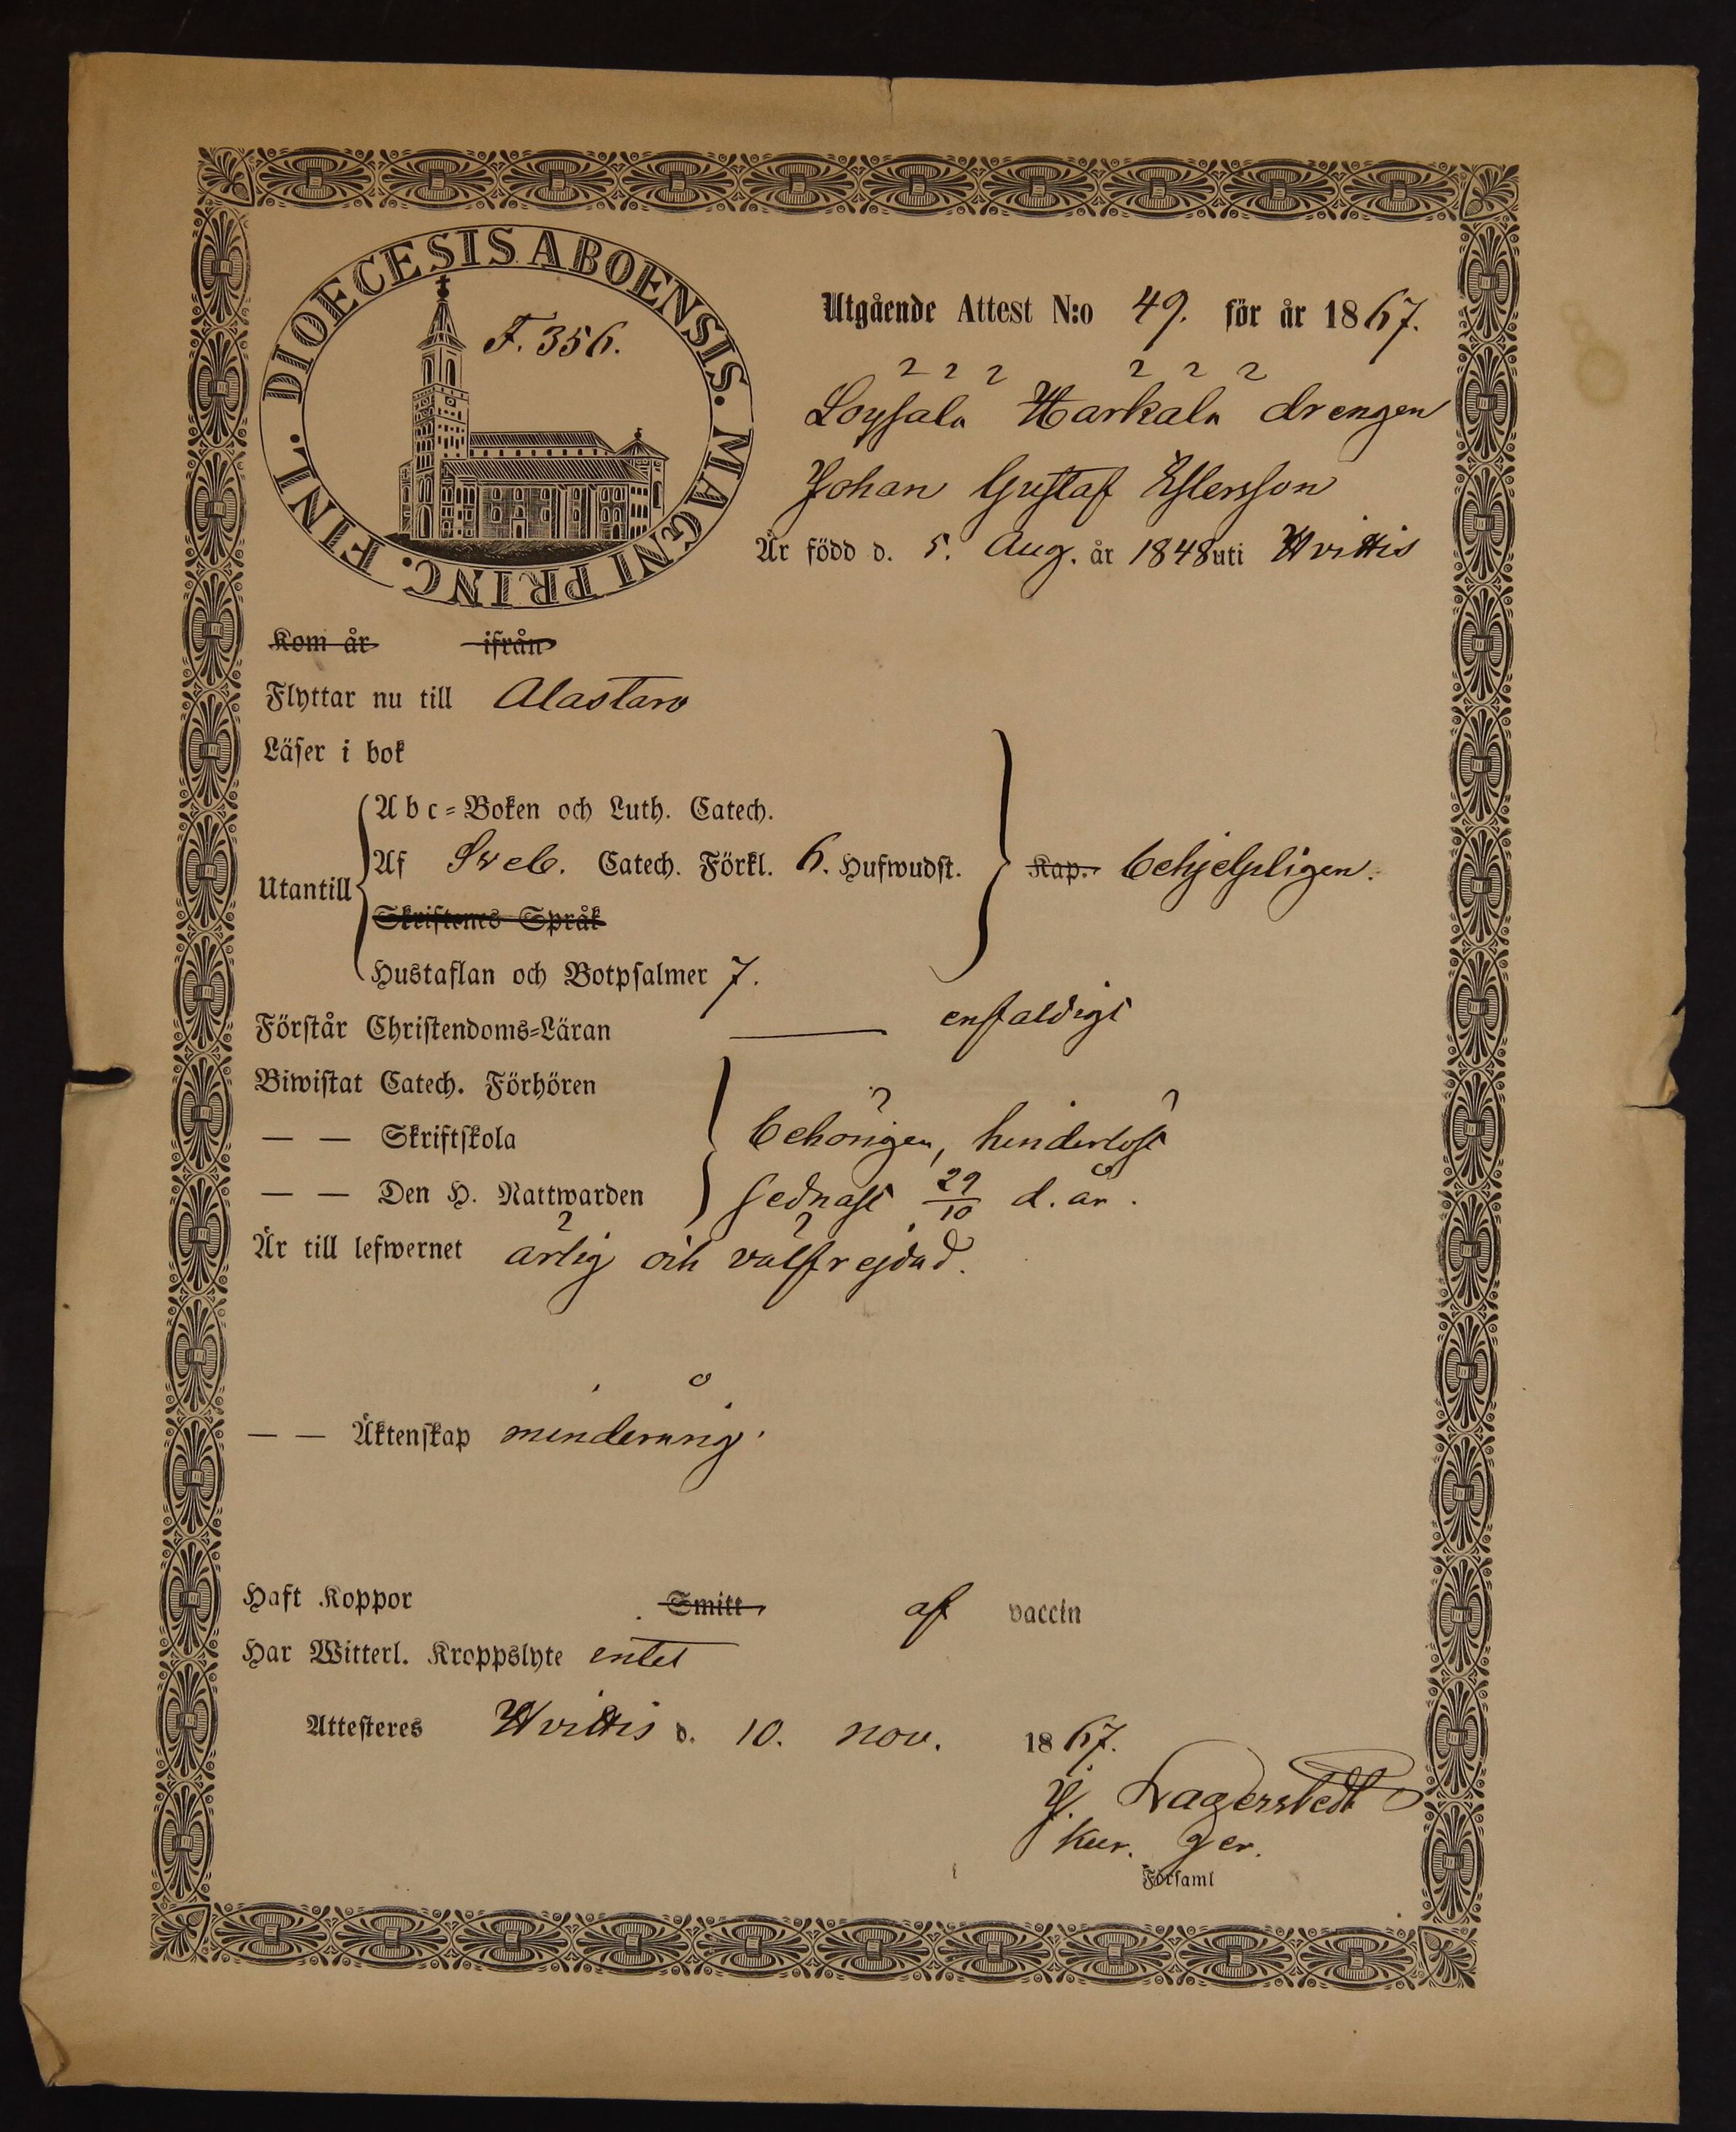 DIOECESIS ABOENSIS. MAGNI PRINC. FINL.
F. 356.
Utgående Attest N:o 49. för år 1867.
Löysälä Härkälä drengen
Johan Gustaf
Är född d. 5. Aug. år 1848 uti Hvittis
Kom år ifrån
Flyttar nu till Alastaro
Läser i bok
Utantill
Abc=Boken och Luth. Catech.
Af Sveb. Catech. Förkl. 6. Hufwudst.
Kap. behjelpligen.
Skriftenes Språk
Hustaflan och Botpsalmer 7.
Förstår Christendoms=Läran — enfaldigt
Biwistat Catech. Förhören
— — Skriftskola behörigen, hinderlöst
— — Den H. Nattwarden sednast 29/10 d. år.
Är till lefwernet ärlig och välfrejdad.
— — Äktenskap minderårig.
Haft Koppor Smitt af vaccin
Har Witterl. Kroppslyte intet
Attesteres Hvittis d. 10. nov. 1867.
J. Lagerstedt
Församl